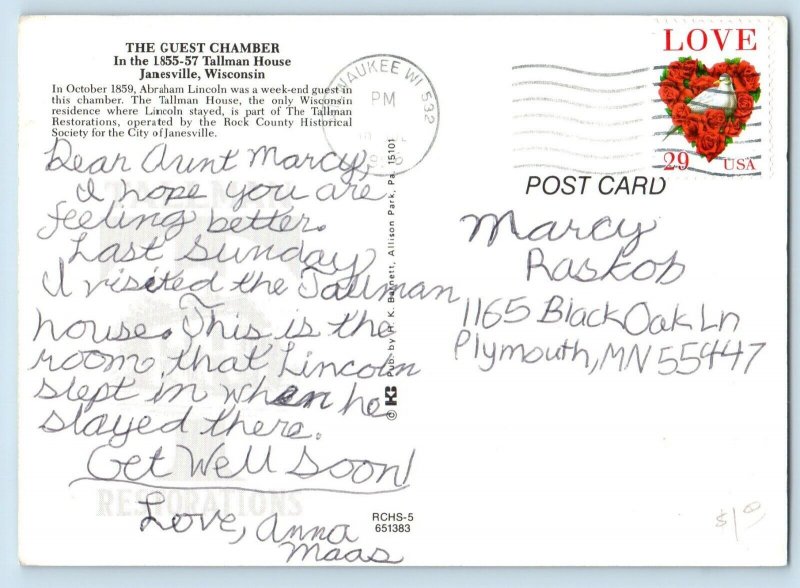 THE GUEST CHAMBER
In the 1855-57 Tallman House
Janesville, Wisconsin
In October 1859, Abraham Lincoln was a week-end guest in
this chamber. The Tallman House, the only Wisconsin
residence where Lincoln stayed, is part of The Tallman
Restorations, operated by the Rock County Historical
Society for the City of Janesville.
Dear Aunt Marcy,
I hope you are
feeling better.
Last Sunday
I visited the Tallman
house. This is the
room that Lincoln
slept in when he
stayed there.
Get Well Soon!
Love, Anna
Maas
TALLMAN
RESTORATIONS
WAUKEE WI 532
PM
LOVE
29 USA
POST CARD
Marcy
Raskob
1165 Black Oak Ln
Plymouth, MN 55447
© KB Pub. by K. Barnett, Allison Park, Pa. 15101
RCHS-5
651383